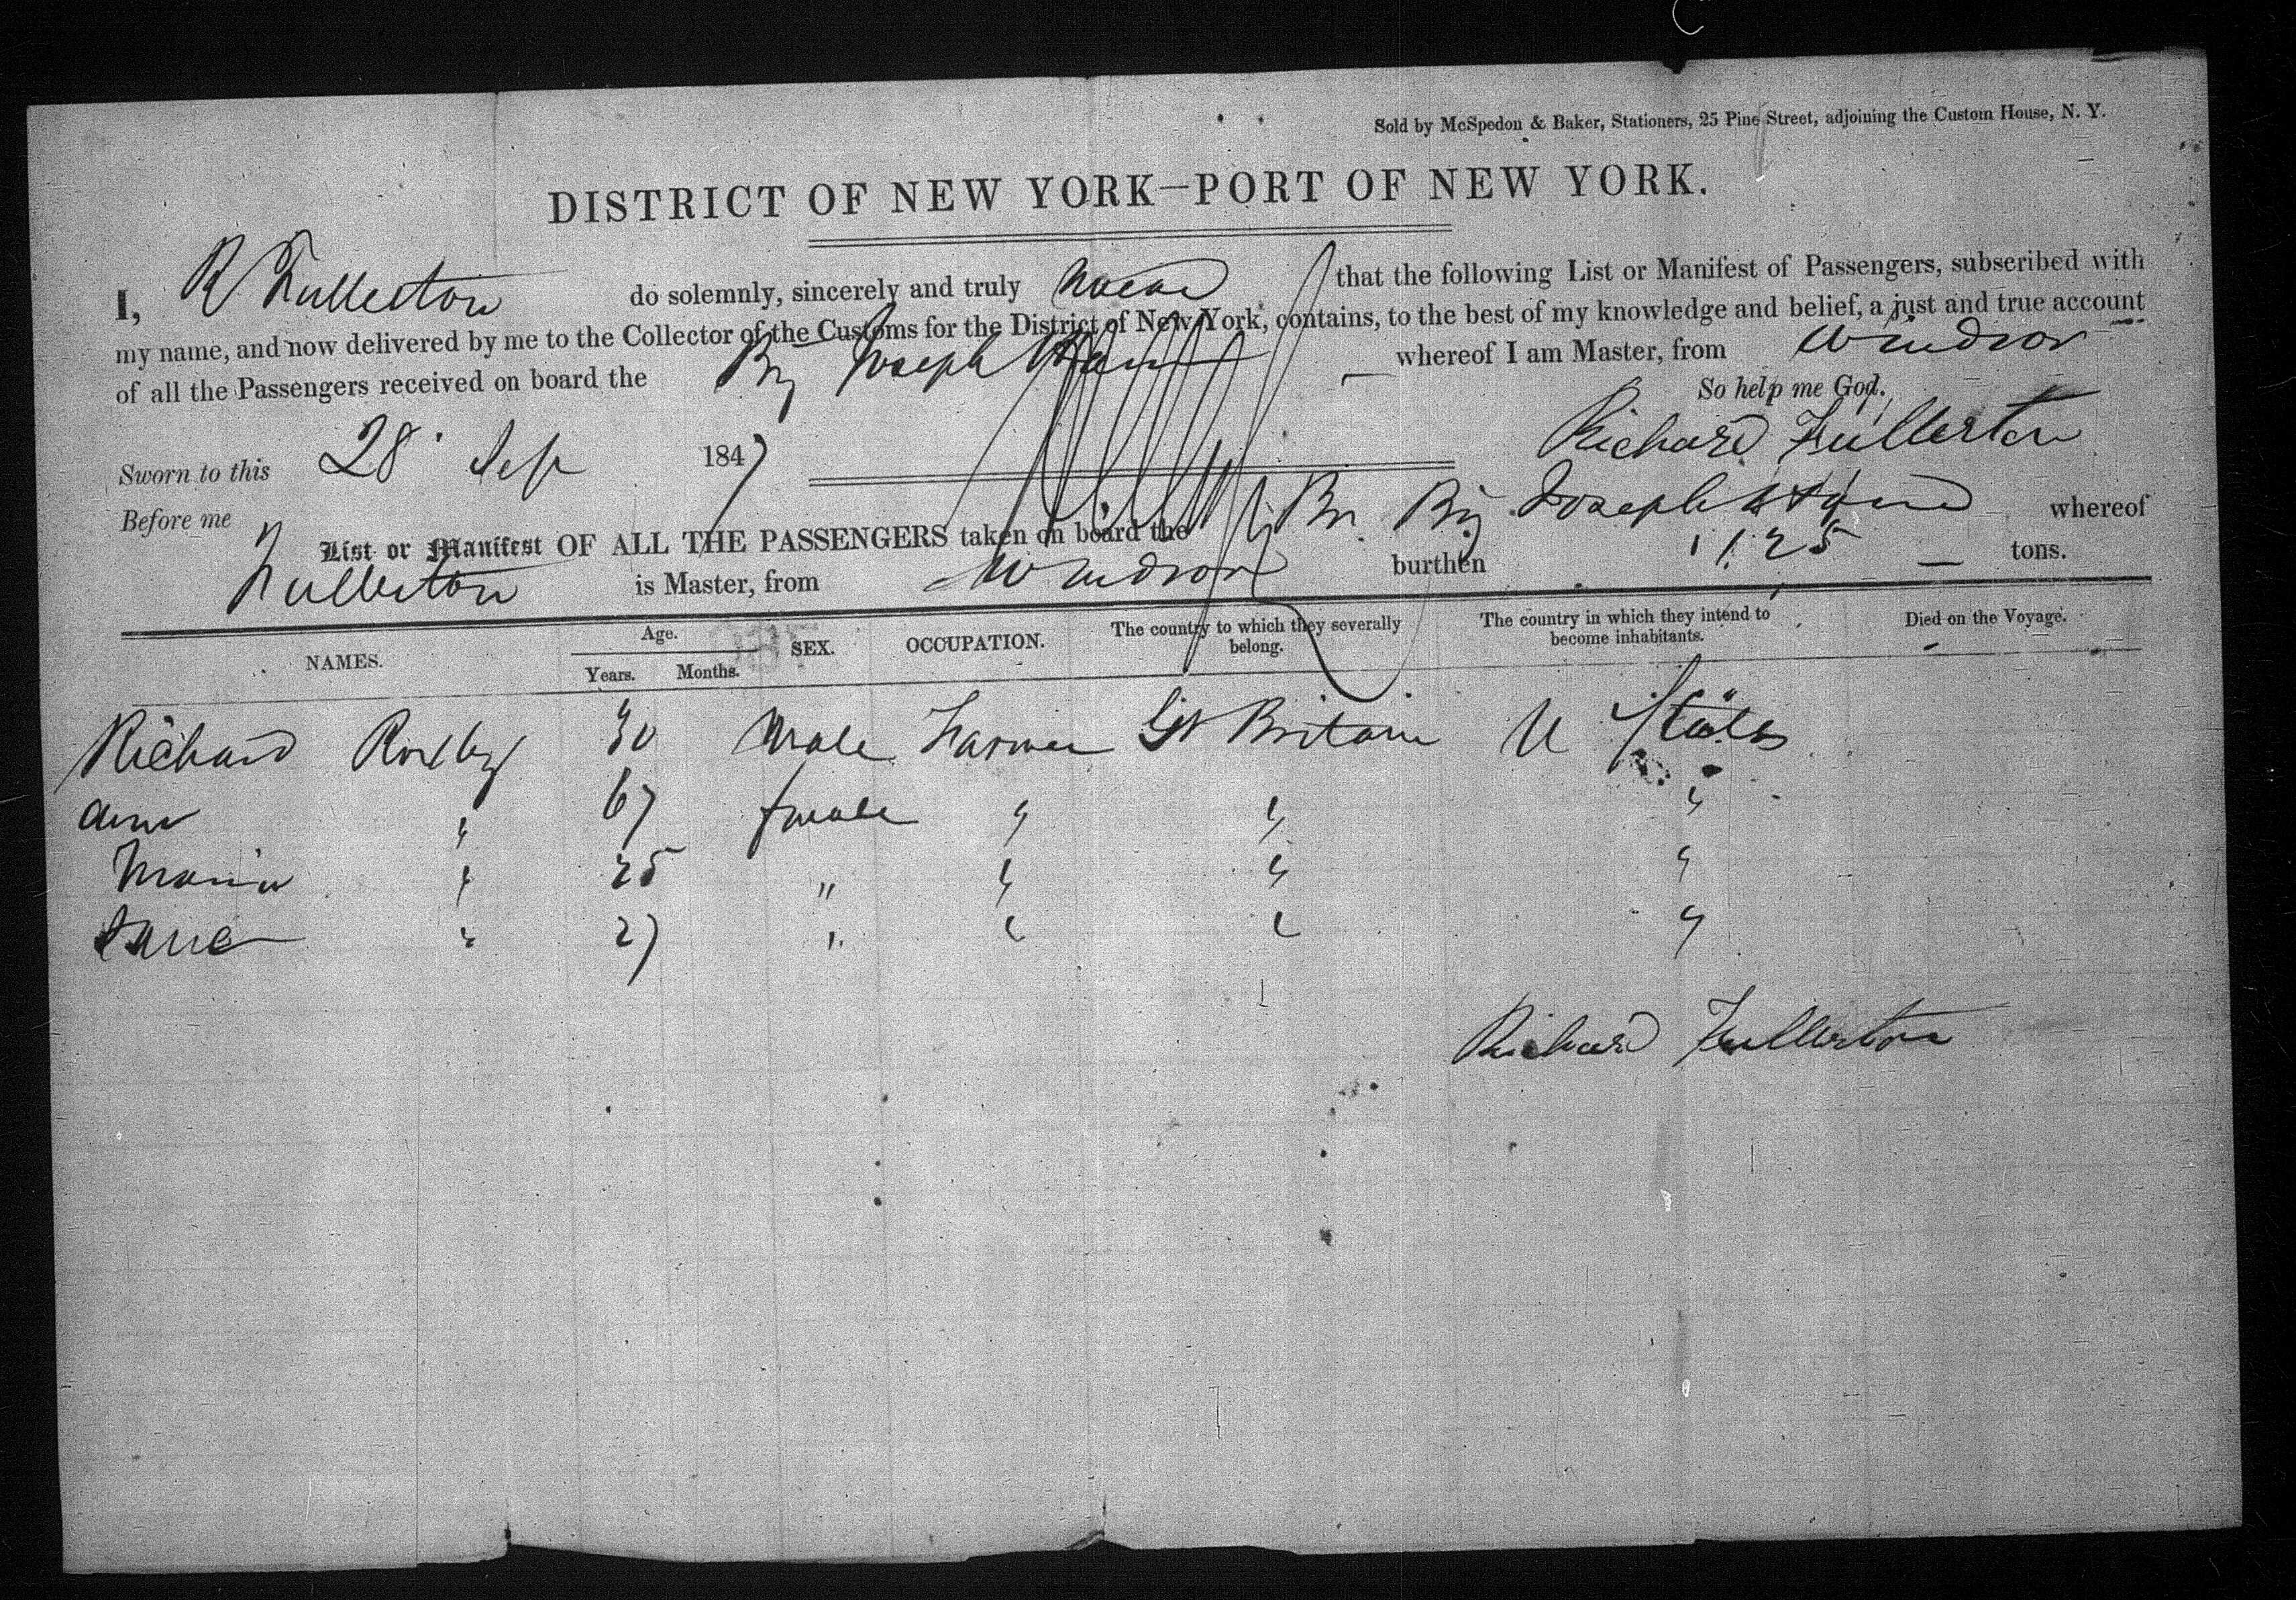 Sold by McSpedon & Baker, Stationers, 25 Pine Street, adjoining the Custom House, N. Y.
DISTRICT OF NEW YORK—PORT OF NEW YORK.
I, R Fullerton do solemnly, sincerely and truly that the following List or Manifest of Passengers, subscribed with
my name, and now delivered by me to the Collector of the Customs for the District of New York, contains, to the best of my knowledge and belief, a just and true account
of all the Passengers received on board the Brig Joseph whereof I am Master, from Windsor
So help me God.
Richard Fullerton
Sworn to this 28 Sep 1847
Before me
List or Manifest OF ALL THE PASSENGERS taken on board the Br. Brig Joseph whereof
Fullerton is Master, from Windsor burthen 125 tons.
NAMES. Age. Years. Months. SEX. OCCUPATION. The country to which they severally belong. The country in which they intend to become inhabitants. Died on the Voyage.
Richard Roxby 30 Male Farmer Gt Britain U States
Ann " 67 female " " "
Maria " 25 " " " "
Jane " 27 " " " "
Richard Fullerton